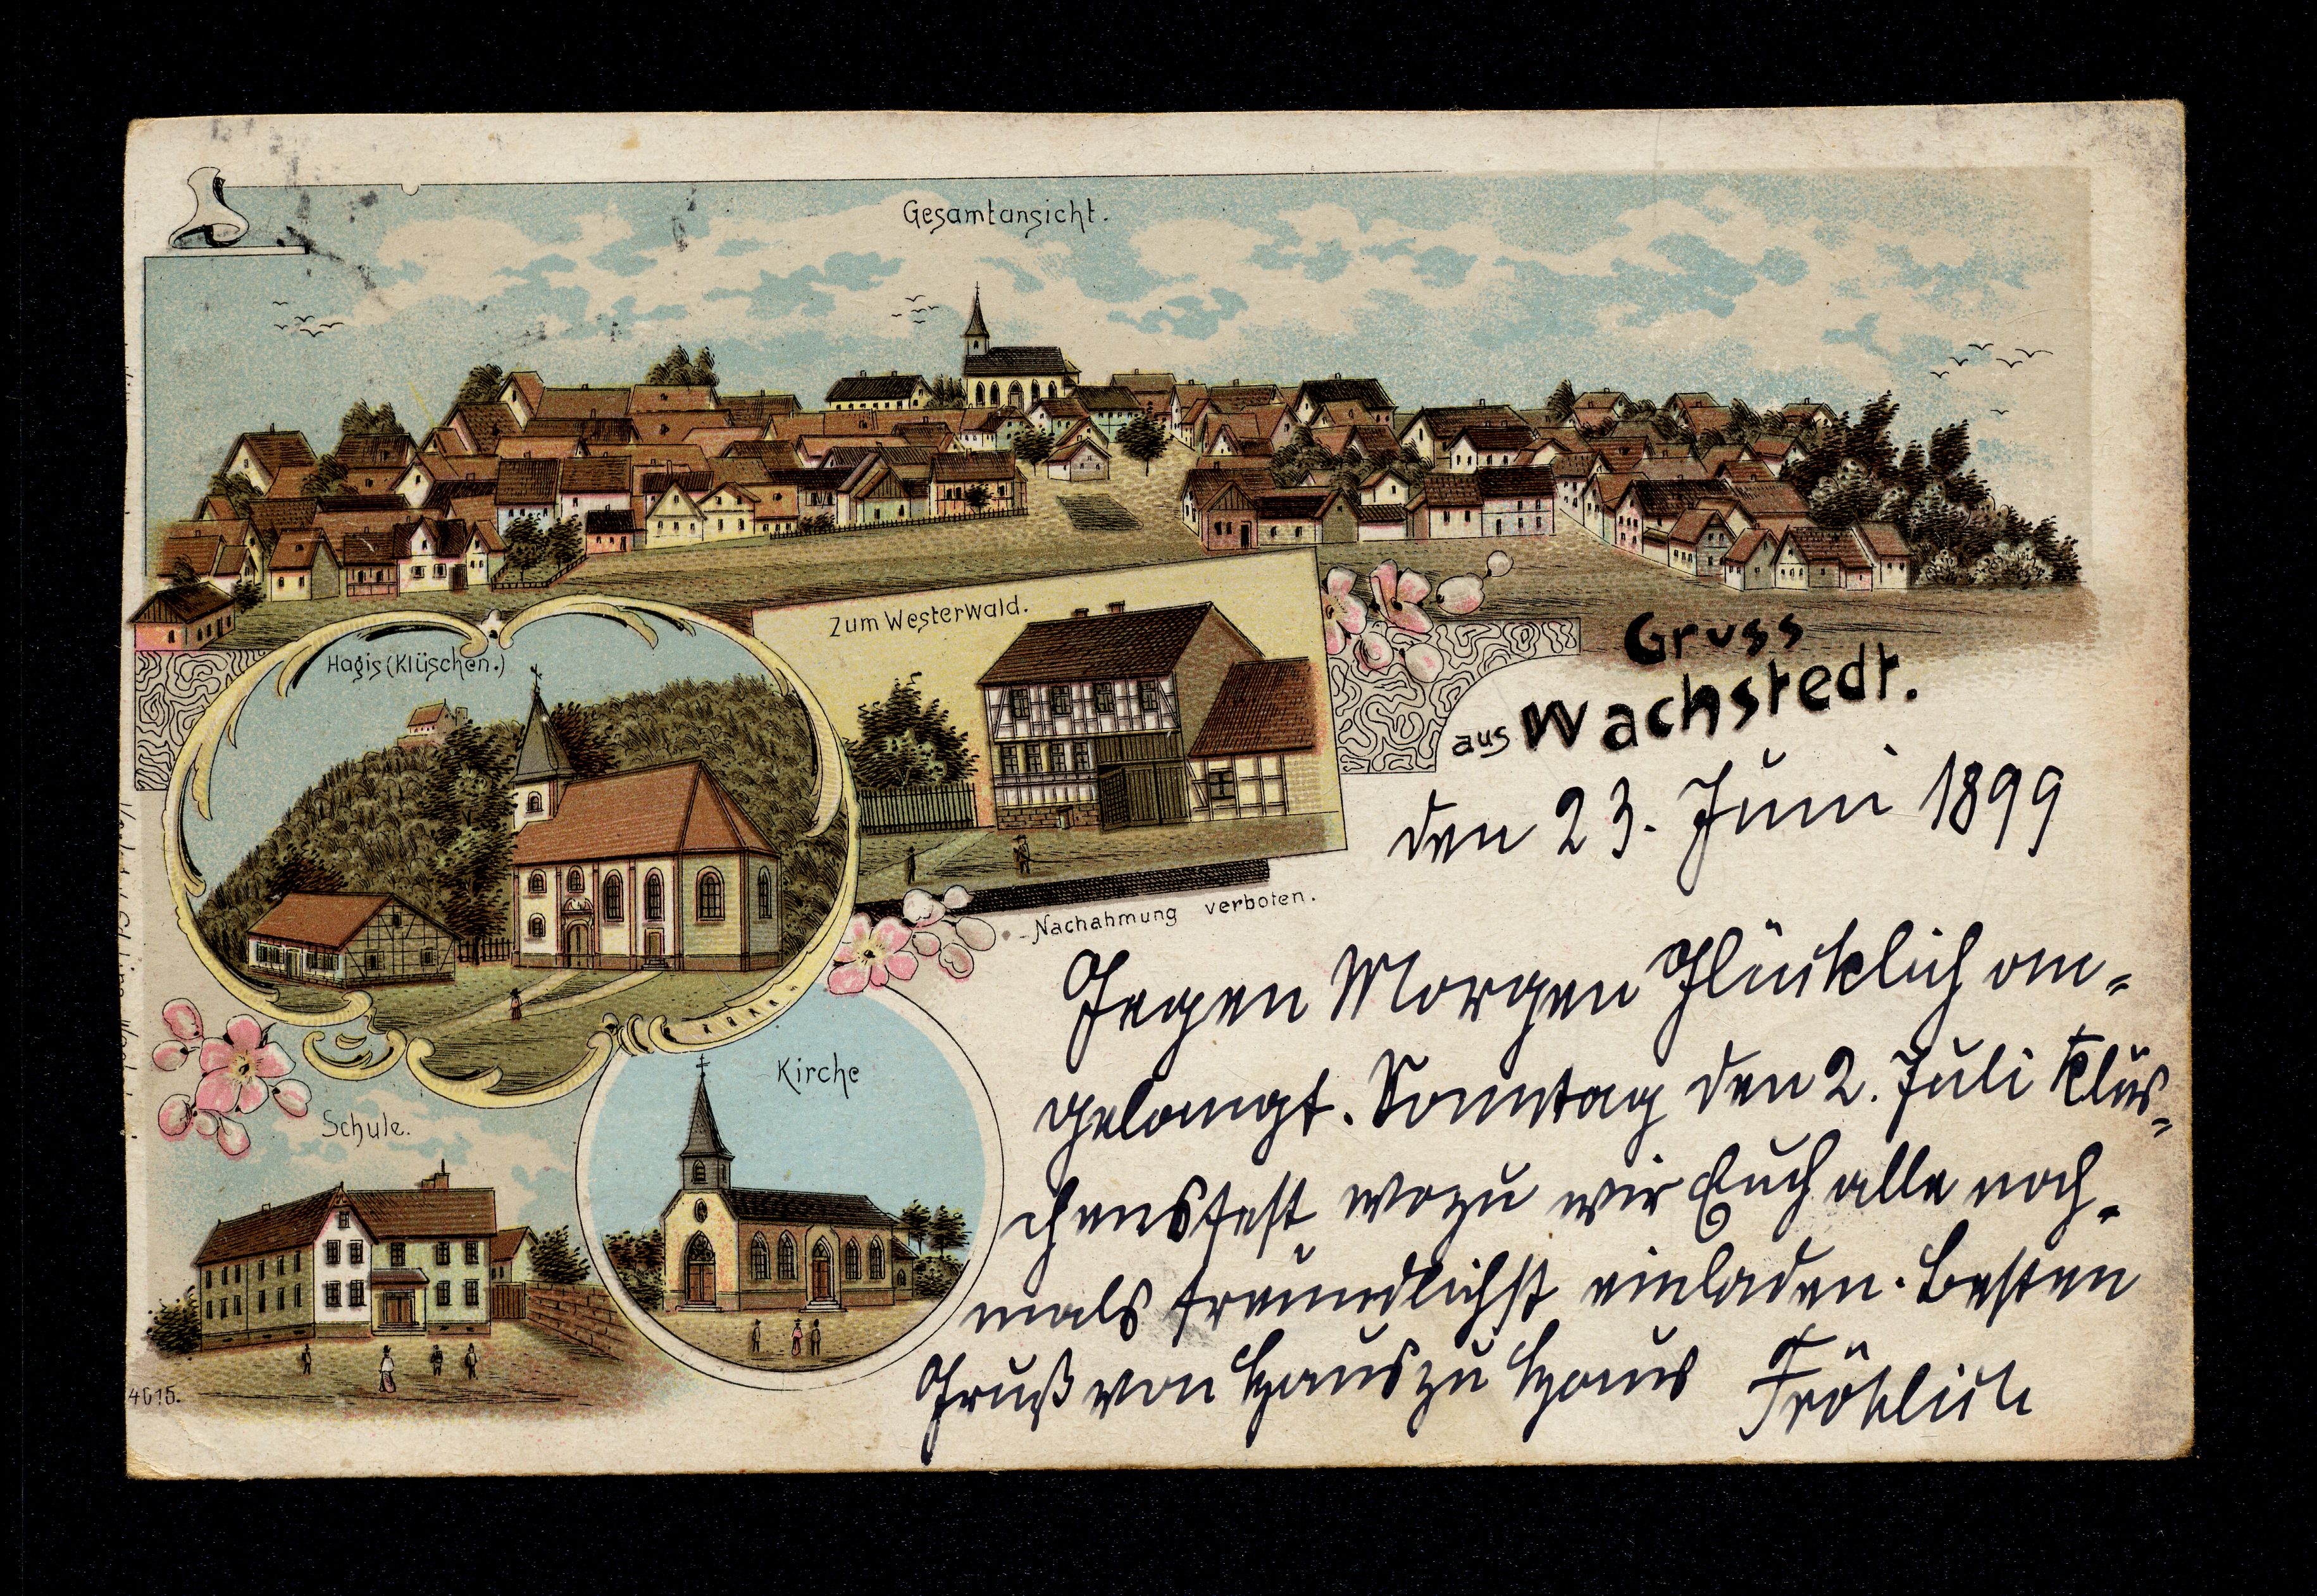 Gesamtansicht.
Hagis (Klüschen.)
Zum Westerwald.
Gruss
aus Wachstedt.
den 23. Juni 1899
Nachahmung verboten.
Gegen Morgen Glücklich an-
gelangt. Sonntag den 2. Juli Klüs-
chensfest wozu wir Euch alle noch-
mals freundlichst einladen. Besten
Gruß von Haus zu Haus Fröhlich
Kirche
Schule.
4615.